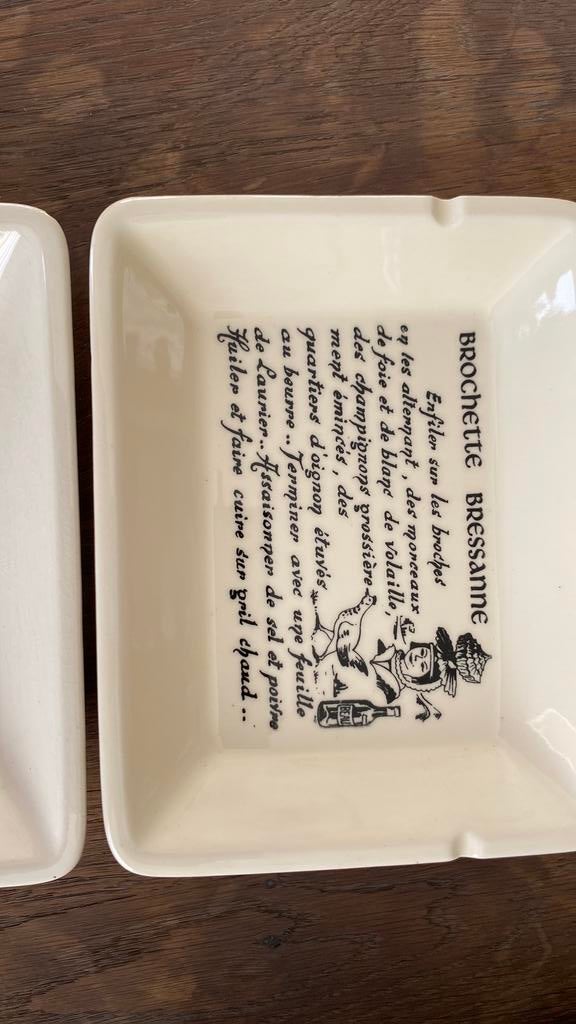 BROCHETTE BRESSANNE
Enfiler sur les broches
en les alternant, des morceaux
de foie et de blanc de volaille,
des champignons grossière
ment émincés, des
quartiers d'oignon étuvés
au beurre.. Terminer avec une feuille
de Laurier.. Assaisonner de sel et poivre
Huiler et faire cuire sur gril chaud..